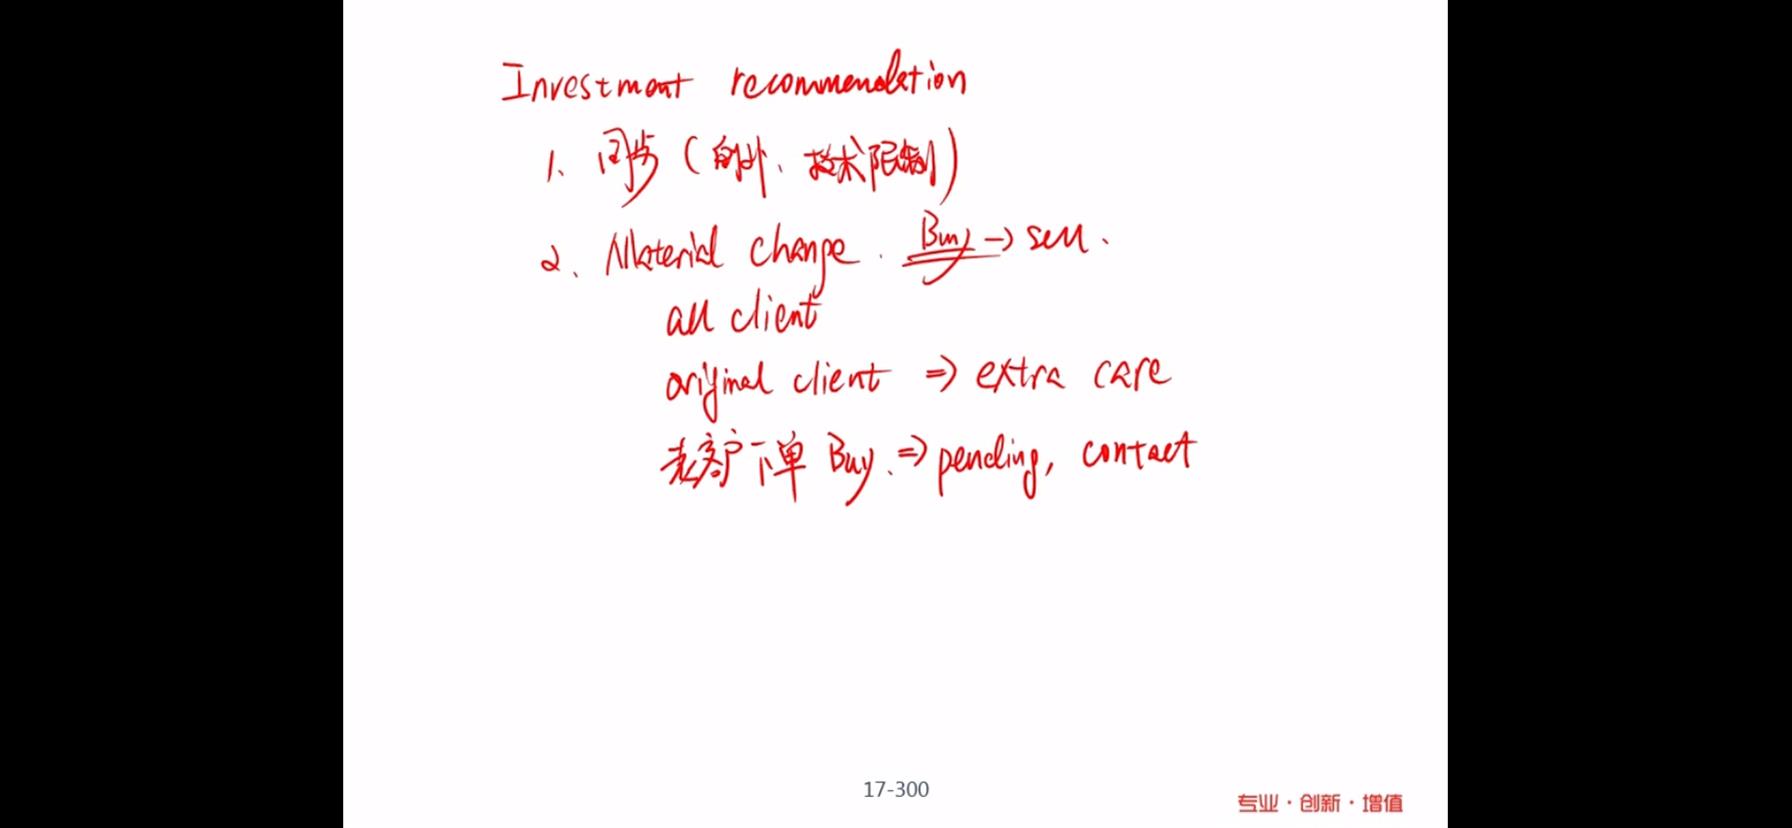 Investment recommendation
1、同步（时、技术限制）
2、Material change. Buy → sell.
all client
original client ⇒ extra care
老客户下单 Buy. ⇒ pending, contact
17-300
专业·创新·增值